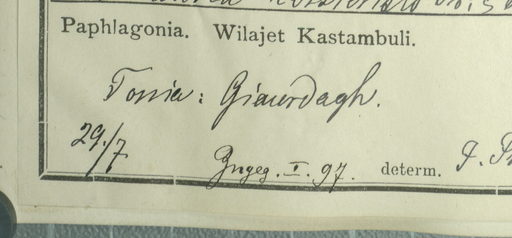 Paphlagonia. Wilajet Kastambuli.
Tossia: Giaurdagh.
29./7
Ingeg. I. 97. determ. J.